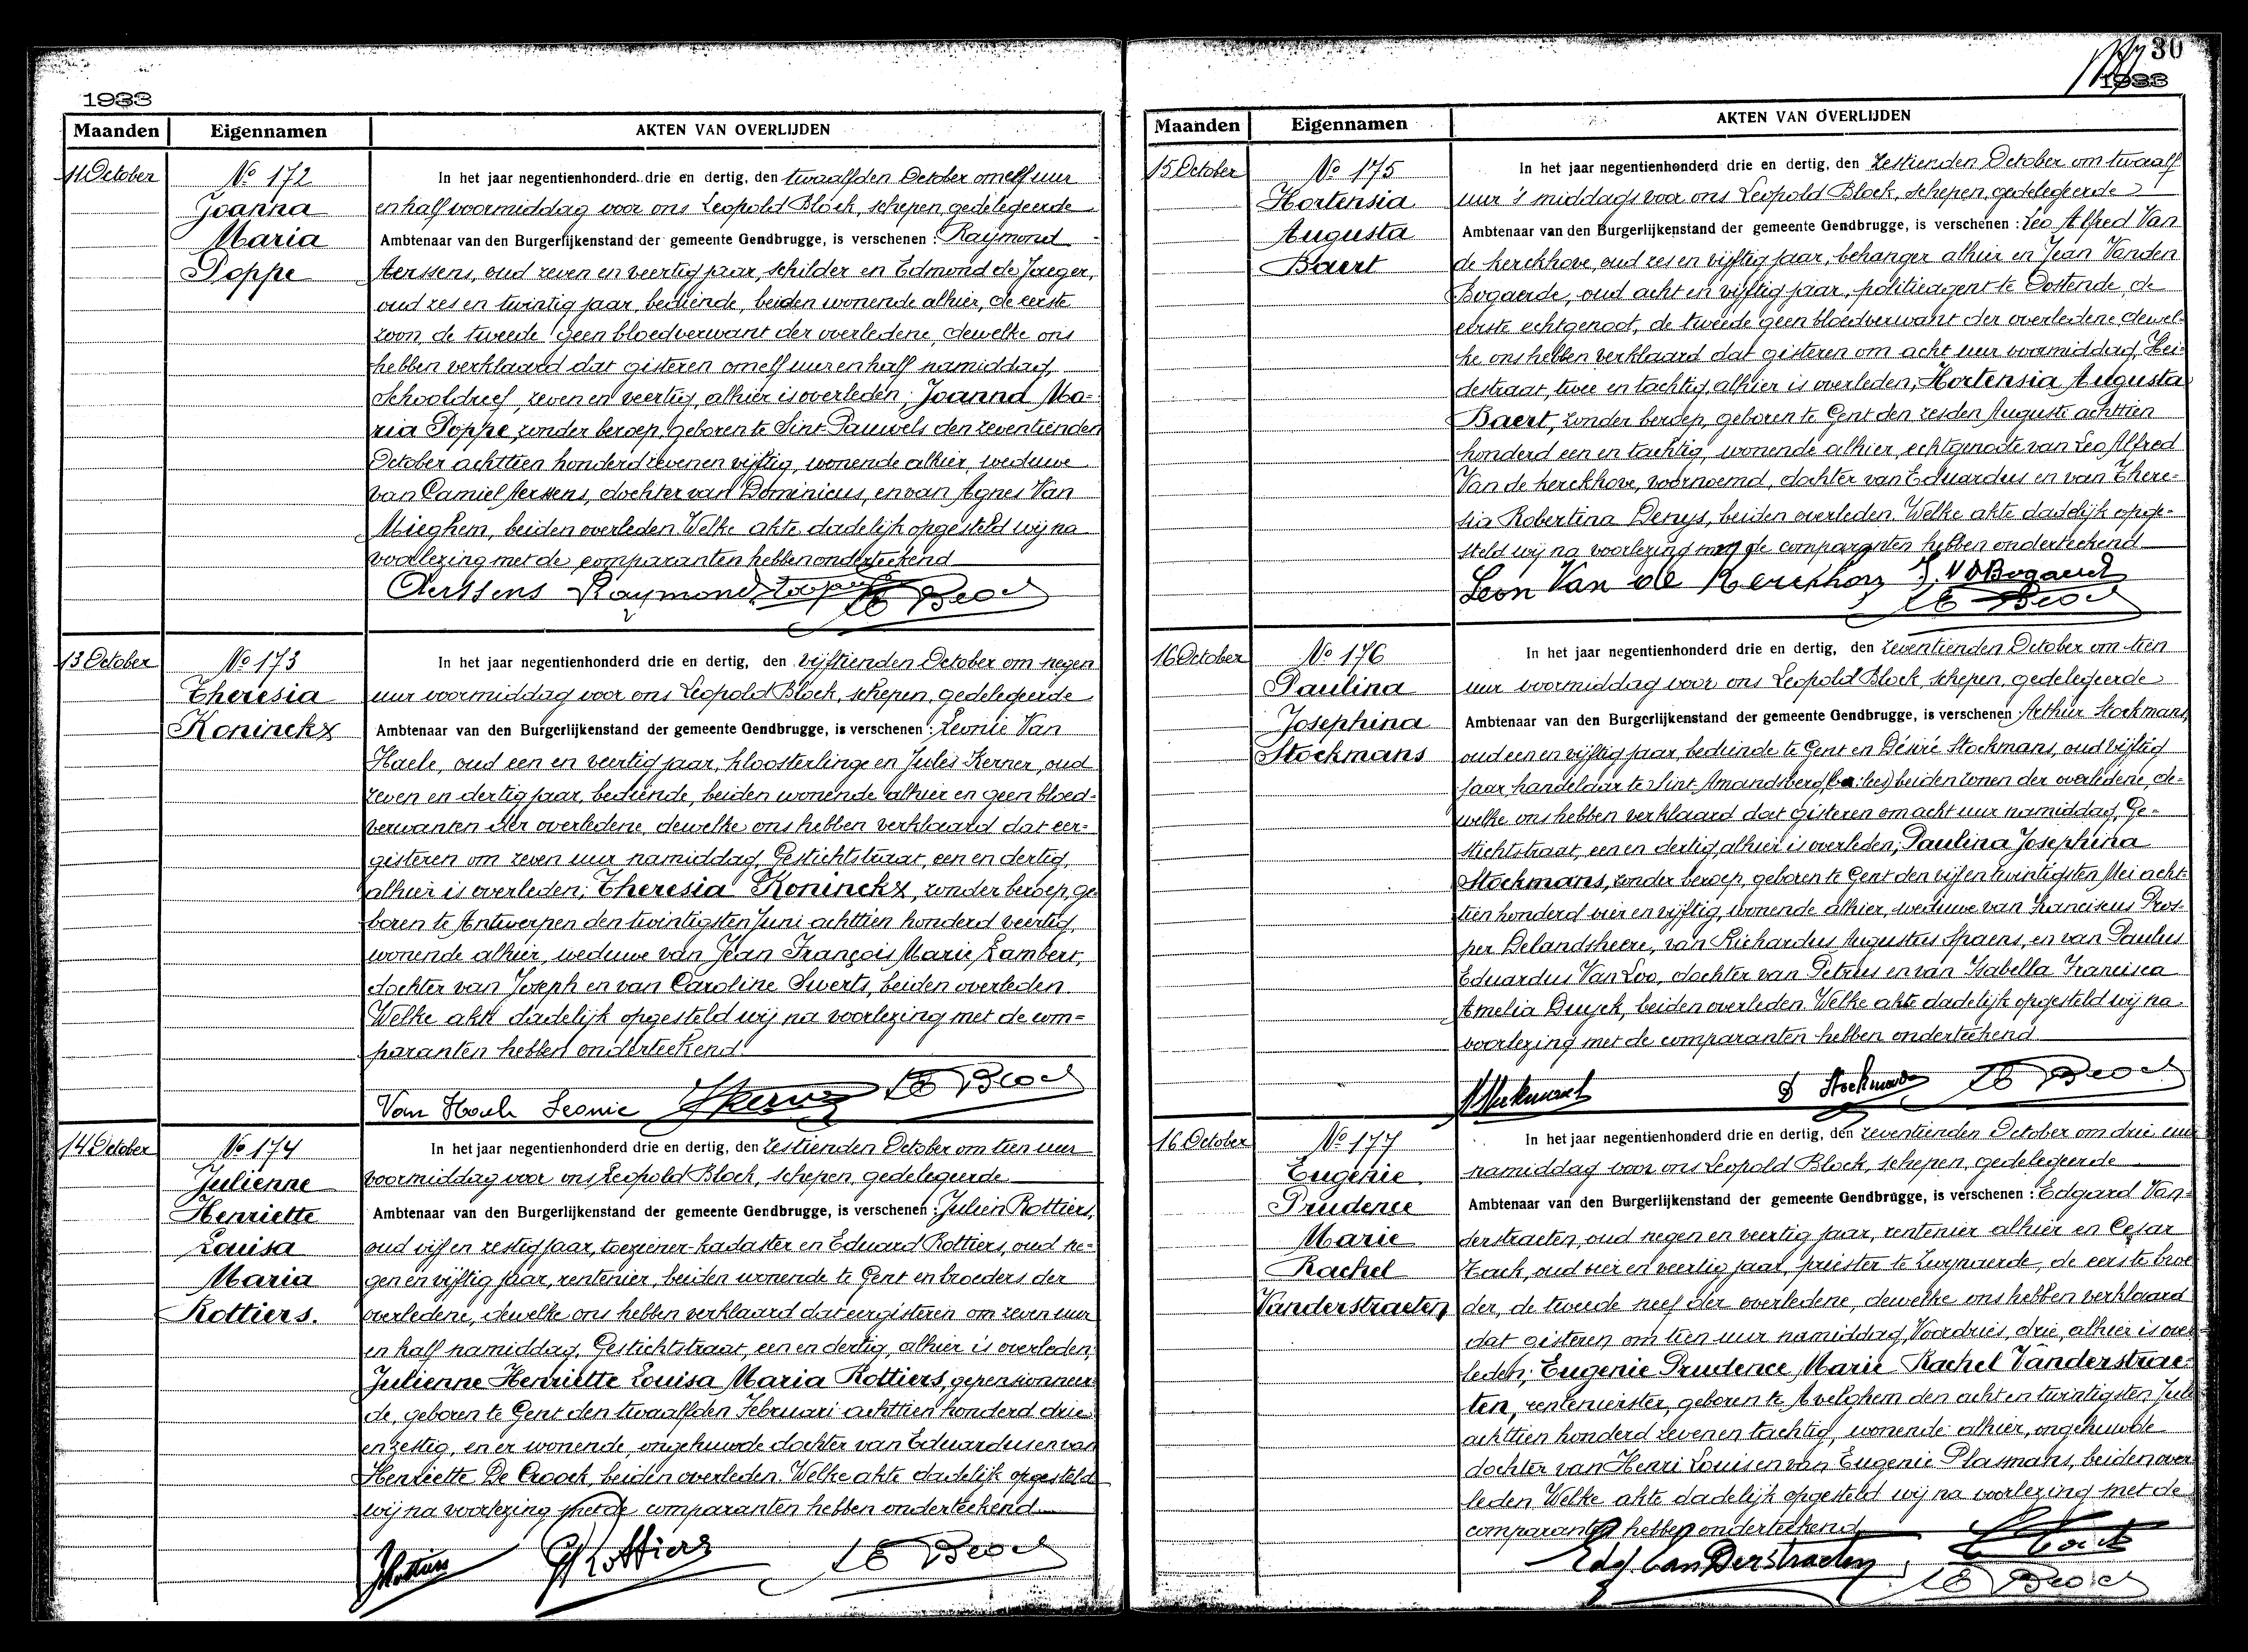 1933
Maanden Eigennamen AKTEN VAN OVERLIJDEN
11 October
No 172
Joanna
Maria
Poppe
In het jaar negentienhonderd drie en dertig, den twaalfden October om elf uur
en half voormiddag voor ons Leopold Block, schepen, gedelegeerde
Ambtenaar van den Burgerlijkenstand der gemeente Gendbrugge, is verschenen : Raymond
Aerssens, oud zeven en veertig jaar, schilder en Edmond de Jaeger,
oud zes en twintig jaar, bediende, beiden wonende alhier, de eerste
zoon, de tweede geen bloedverwant der overledene, dewelke ons
hebben verklaard dat gisteren om elf uur en half namiddag,
Schooldreef, zeven en veertig, alhier is overleden; Joanna Ma=
ria Poppe, zonder beroep, geboren te Sint Pauwels den zeventienden
October achttien honderd zeven en vijftig, wonende alhier, weduwe
van Camiel Aerssens, dochter van Dominicus, en van Agnes Van
Mieghem, beiden overleden. Welke akte dadelijk opgesteld wij na
voorlezing met de comparanten hebben onderteekend
Aerssens Raymond
13 October
No 173
Theresia
Koninckx
In het jaar negentienhonderd drie en dertig, den vijftienden October om negen
uur voormiddag voor ons Leopold Block, schepen, gedelegeerde
Ambtenaar van den Burgerlijkenstand der gemeente Gendbrugge, is verschenen : Leonie Van
Haele, oud een en veertig jaar, kloosterlinge en Jules Kerner, oud
zeven en dertig jaar, bediende, beiden wonende alhier en geen bloed=
verwanten der overledene, dewelke ons hebben verklaard dat eer=
gisteren om zeven uur namiddag, Gestichtstraat, een en dertig,
alhier is overleden; Theresia Koninckx, zonder beroep, ge
boren te Antwerpen den twintigsten Juni achttien honderd veertig,
wonende alhier, weduwe van Jean François Marie Lambert,
dochter van Joseph en van Caroline Swerts, beiden overleden.
Welke akte dadelijk opgesteld wij na voorlezing met de com=
paranten hebben onderteekend.
Van Haele Leonie
14 October
No 174
Julienne
Henriette
Louisa
Maria
Rottiers.
In het jaar negentienhonderd drie en dertig, den zestienden October om tien uur
voormiddag voor ons Leopold Block, schepen, gedelegeerde
Ambtenaar van den Burgerlijkenstand der gemeente Gendbrugge, is verschenen : Julien Rottiers,
oud vijf en zestig jaar, toeziener-kadaster en Eduard Rottiers, oud ne=
gen en vijftig jaar, rentenier, beiden wonende te Gent en broeders der
overledene, dewelke ons hebben verklaard dat eergisteren om zeven uur
en half namiddag, Gestichtstraat, een en dertig, alhier is overleden;
Julienne Henriette Louisa Maria Rottiers, gepensionneer=
de, geboren te Gent den twaalfden Februari achttien honderd drie
en zestig, en er wonende, ongehuwde dochter van Eduardus en van
Henriette De Croock, beiden overleden. Welke akte dadelijk opgesteld
wij na voorlezing met de comparanten hebben onderteekend
Rottiers
30
1933
Maanden Eigennamen AKTEN VAN OVERLIJDEN
15 October
No 175
Hortensia
Augusta
Baert
In het jaar negentienhonderd drie en dertig, den zestienden October om twaalf
uur 's middags voor ons Leopold Block, schepen, gedelegeerde
Ambtenaar van den Burgerlijkenstand der gemeente Gendbrugge, is verschenen : Leo Alfred Van
de kerckhove, oud zes en vijftig jaar, behanger alhier en Jean Vanden
Bogaerde, oud acht en vijftig jaar, politieagent te Oostende, de
eerste echtgenoot, de tweede geen bloedverwant der overledene, dewel=
ke ons hebben verklaard dat gisteren om acht uur voormiddag, Hei=
destraat, twee en tachtig, alhier is overleden; Hortensia Augusta
Baert, zonder beroep, geboren te Gent den zesden Augusti achttien
honderd een en tachtig, wonende alhier, echtgenoote van Leo Alfred
Van de kerckhove, voornoemd, dochter van Eduardus en van There=
sia Robertina Denys, beiden overleden. Welke akte dadelijk opge=
steld wij na voorlezing met de comparanten hebben onderteekend
Leon Van de Kerckhove J. VD Bogaerde
16 October
No 176
Paulina
Josephina
Stockmans
In het jaar negentienhonderd drie en dertig, den zeventienden October om tien
uur voormiddag voor ons Leopold Block, schepen, gedelegeerde
Ambtenaar van den Burgerlijkenstand der gemeente Gendbrugge, is verschenen : Arthur Stockmans,
oud een en vijftig jaar, bediende te Gent en Désiré Stockmans, oud vijftig
jaar, handelaar te Sint Amandsberg, beiden zonen der overledene, de=
welke ons hebben verklaard dat gisteren om acht uur namiddag, Ge=
stichtstraat, een en dertig, alhier is overleden; Paulina Josephina
Stockmans, zonder beroep, geboren te Gent den vijf en twintigsten Mei acht=
tien honderd vier en vijftig, wonende alhier, weduwe van Franciscus Pros=
per Delandsheere, van Richardus Augustus Spaens, en van Paulus
Eduardus Van Loo, dochter van Petrus en van Isabella Francisca
Amelia Duyck, beiden overleden. Welke akte dadelijk opgesteld wij na
voorlezing met de comparanten hebben onderteekend
D Stockmans
16 October
No 177
Eugénie
Prudence
Marie
Rachel
Vanderstraeten
In het jaar negentienhonderd drie en dertig, den zeventienden October om drie uur
namiddag voor ons Leopold Block, schepen, gedelegeerde
Ambtenaar van den Burgerlijkenstand der gemeente Gendbrugge, is verschenen : Edgard Van=
derstraeten, oud negen en veertig jaar, rentenier alhier en Cesar
oud vier en veertig jaar, priester te Zwynaerde, de eerste broe
der, de tweede neef der overledene, dewelke ons hebben verklaard
dat gisteren om tien uur namiddag, Voordries, drie, alhier is over
leden; Eugenie Prudence Marie Rachel Vanderstrae=
ten, rentenierster, geboren te Avelghem den acht en twintigsten Juli
achttien honderd zeven en tachtig, wonende alhier, ongehuwde
dochter van Henri Louis en van Eugenie Plasmans, beiden over
leden. Welke akte dadelijk opgesteld wij na voorlezing met de
comparanten hebben onderteekend
Edg. VanDerstraeten